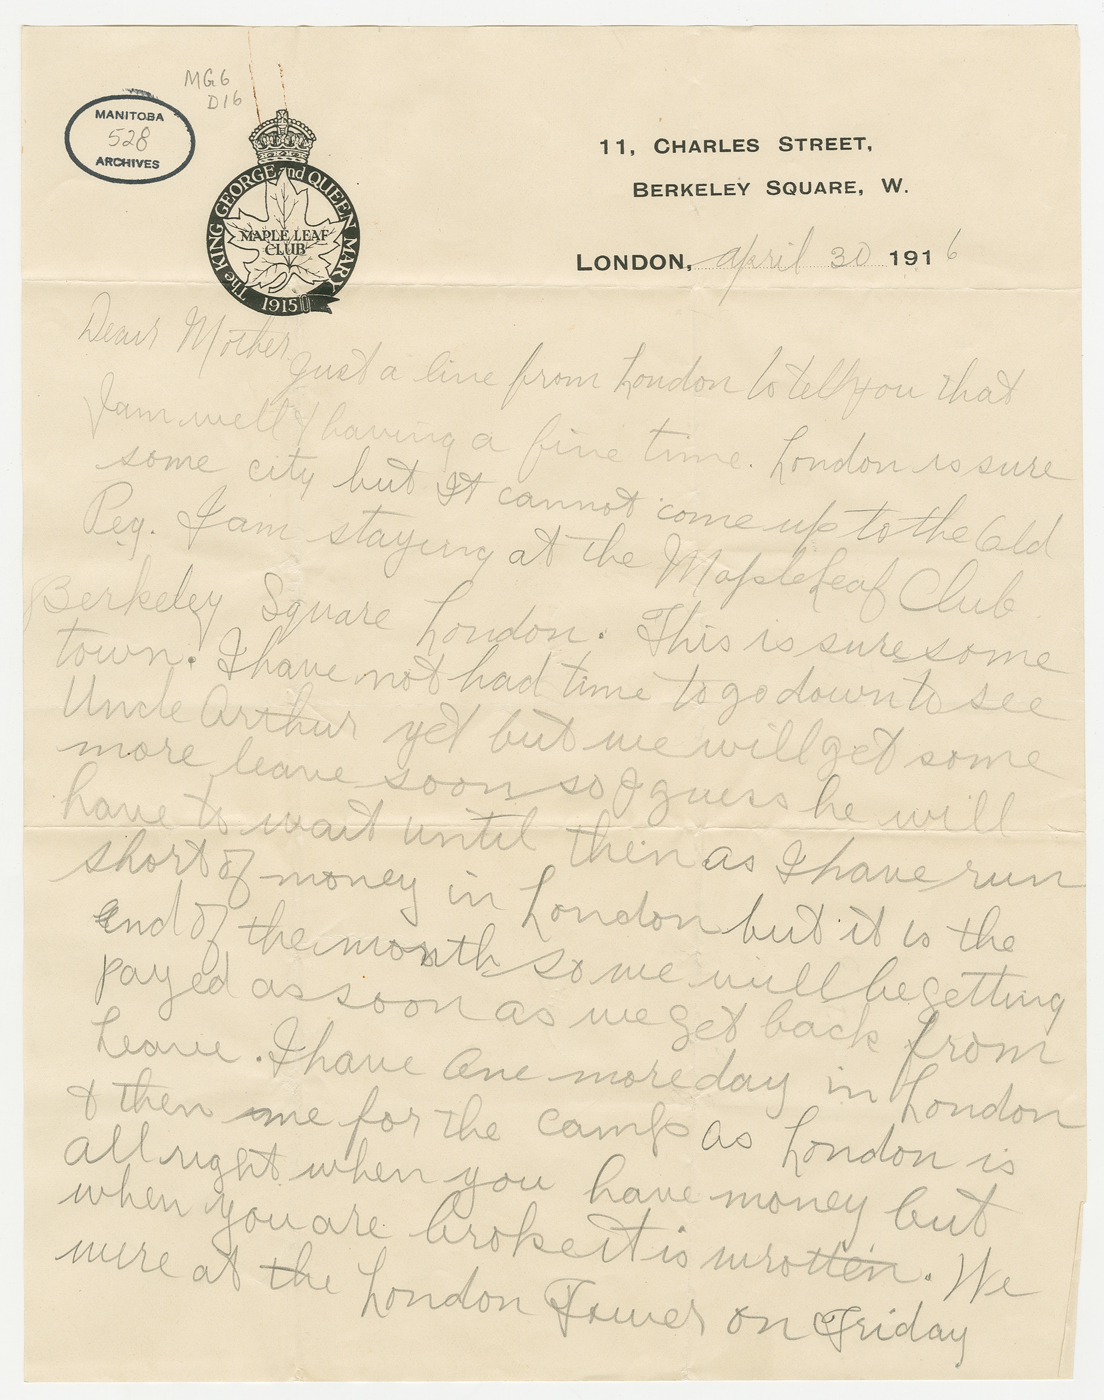 MG6
D16
MANITOBA
528
ARCHIVES
The KING GEORGE and QUEEN MARY
MAPLE LEAF
CLUB
1915
11, CHARLES STREET,
BERKELEY SQUARE, W.
LONDON, april 30 1916
Dear Mother
Just a line from London to tell you that
I am well & having a fine time. London is sure
some city but It cannot come up to the Old
Peg. I am staying at the Maple Leaf Club
Berkeley Square London. This is sure some
town. I have not had time to go down to see
Uncle Arthur yet but we will get some
more leave soon so I guess he will
have to wait until then as I have run
short of money in London but it is the
end of the month so we will be getting
payed as soon as we get back from
Leave. I have one more day in London
& then me for the camp as London is
all right when you have money but
when you are broke it is wrotten. We
were at the London Tower on Friday